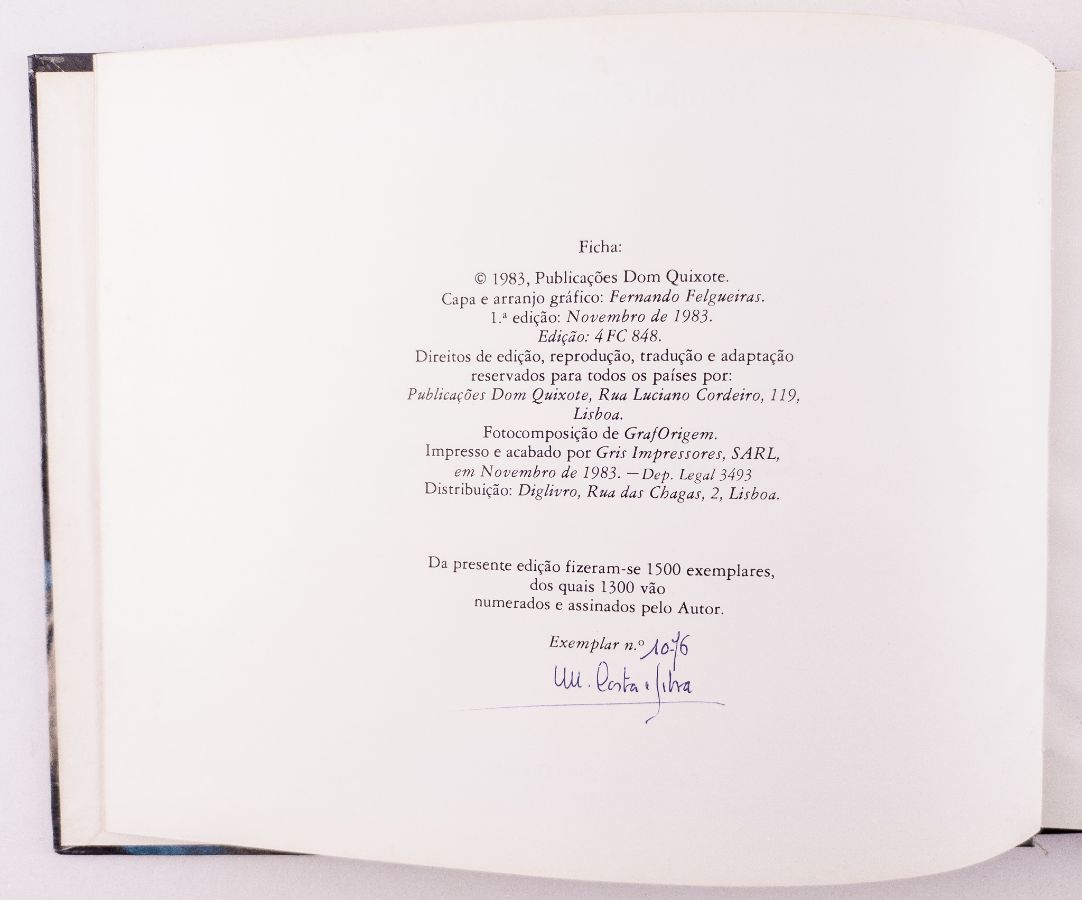 Ficha:
© 1983, Publicações Dom Quixote.
Capa e arranjo gráfico: Fernando Felgueiras.
1.ª edição: Novembro de 1983.
Edição: 4 FC 848.
Direitos de edição, reprodução, tradução e adaptação
reservados para todos os países por:
Publicações Dom Quixote, Rua Luciano Cordeiro, 119,
Lisboa.
Fotocomposição de GrafOrigem.
Impresso e acabado por Gris Impressores, SARL,
em Novembro de 1983. — Dep. Legal 3493
Distribuição: Diglivro, Rua das Chagas, 2, Lisboa.
Da presente edição fizeram-se 1500 exemplares,
dos quais 1300 vão
numerados e assinados pelo Autor.
Exemplar n.º 1076
M. Costa e Silva